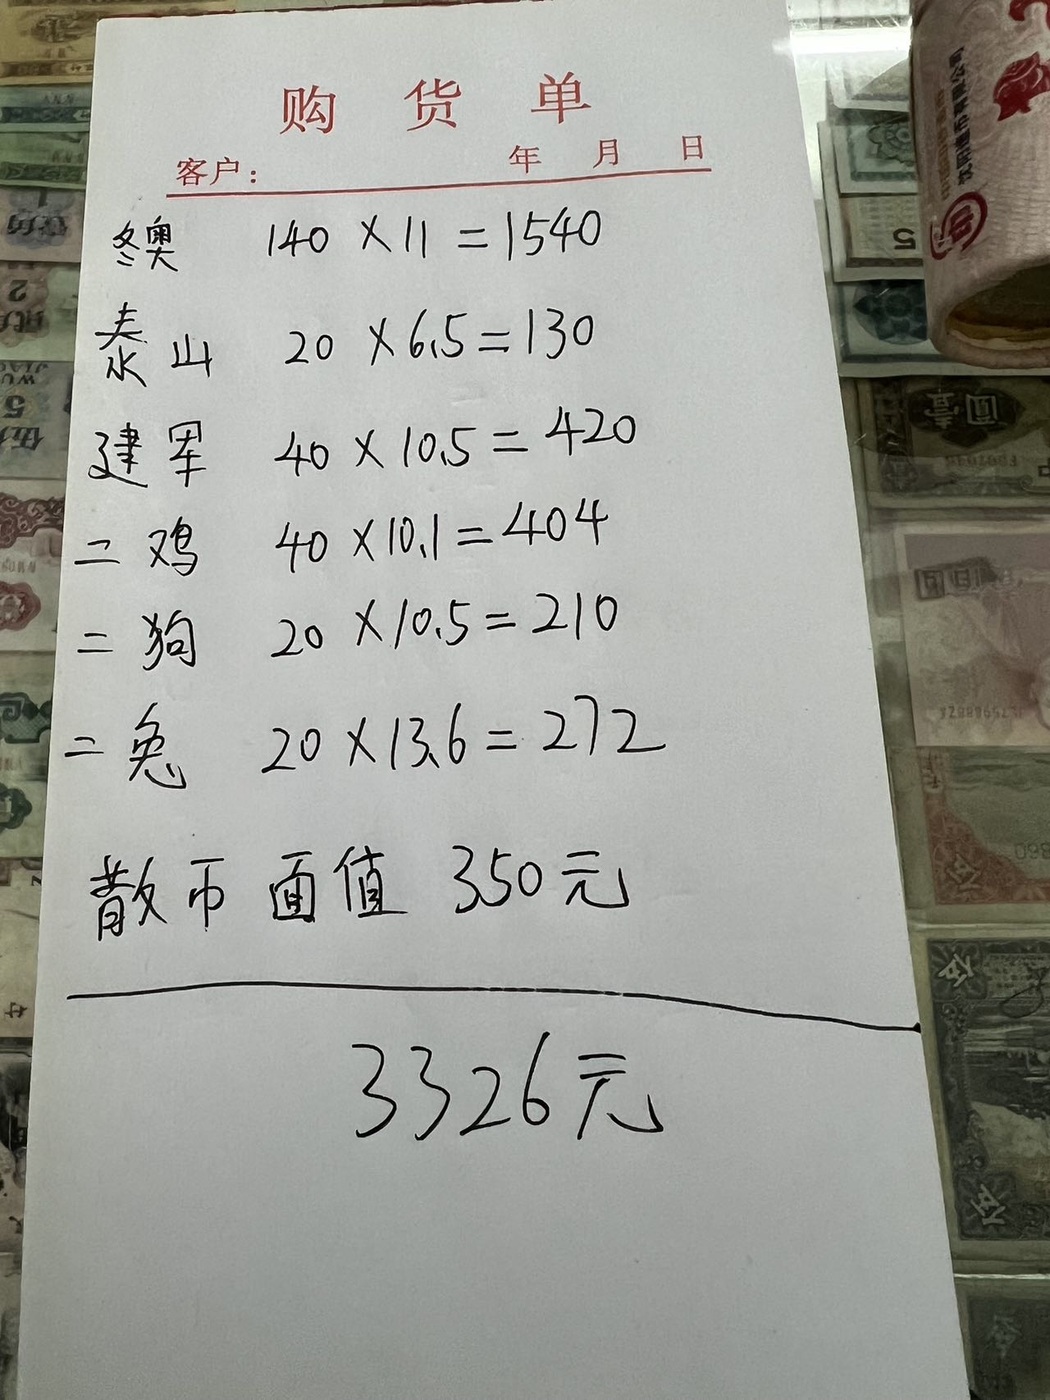 购货单
客户： 年 月 日
冬奥 140×11=1540
泰山 20×6.5=130
建军 40×10.5=420
二鸡 40×10.1=404
二狗 20×10.5=210
二兔 20×13.6=272
散币 面值 350元
3326元